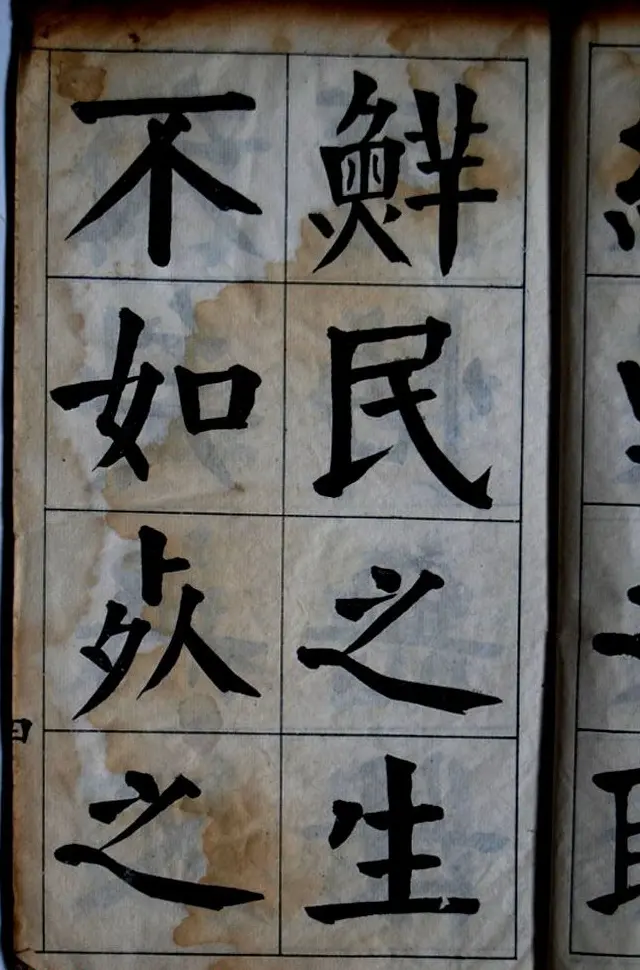 鮮民之生
不如死之